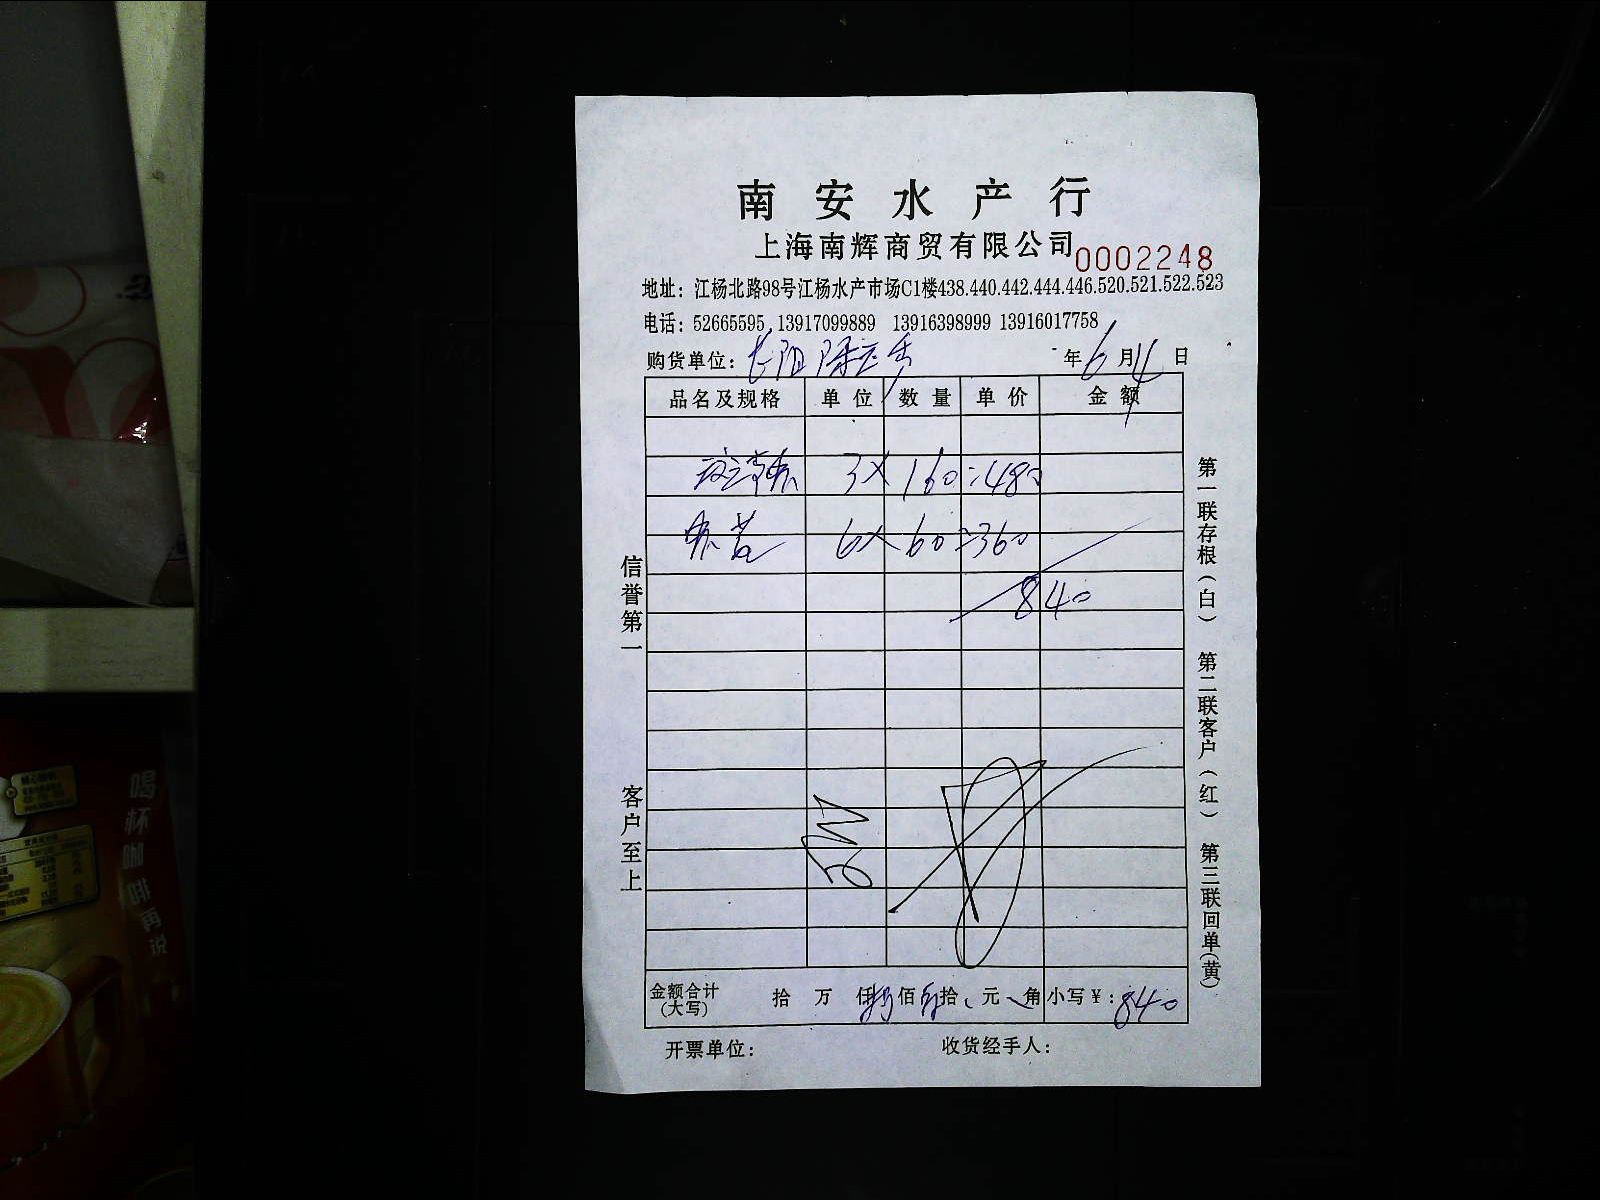 南安水产行
上海南辉商贸有限公司 0002248
地址：江杨北路98号江杨水产市场C1楼438.440.442.444.446.520.521.522.523
电话：52665595 , 13917099889 13916398999 13916017758
购货单位： 年6月4日
品名及规格 单位 数量 单价 金额
3× 160=480
6× 60=360
840
信誉第一
客户至上
第一联存根（白） 第二联客户（红） 第三联回单(黄)
金额合计(大写) 拾 万 仟 捌 佰 肆 拾 元 角 小写¥：840
开票单位： 收货经手人：
喝杯咖啡再说